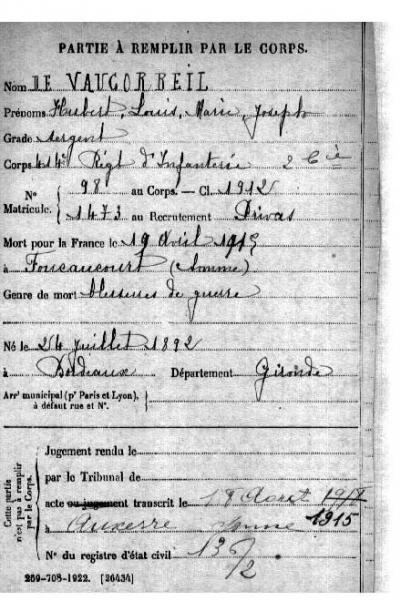 PARTIE À REMPLIR PAR LE CORPS.
Nom DE VAUCORBEIL
Prénoms Hubert, Louis, Marie, Joseph
Grade sergent
Corps 414e Régt d'Infanterie 2 Cie
N° Matricule. 98 au Corps. — Cl. 1912
1473 au Recrutement Privas
Mort pour la France le 19 Avril 1915
à Foucaucourt (Somme)
Genre de mort blessures de guerre
Né le 24 juillet 1892
à Bordeaux Département Gironde
Arrt municipal (pr Paris et Lyon),
à défaut rue et N°.
Cette partie
n'est pas à remplir
par le Corps.
Jugement rendu le
par le Tribunal de
acte ou jugement transcrit le Août 1915
à Auxerre Yonne
N° du registre d'état civil 136/2
269-708-1922. [26434]